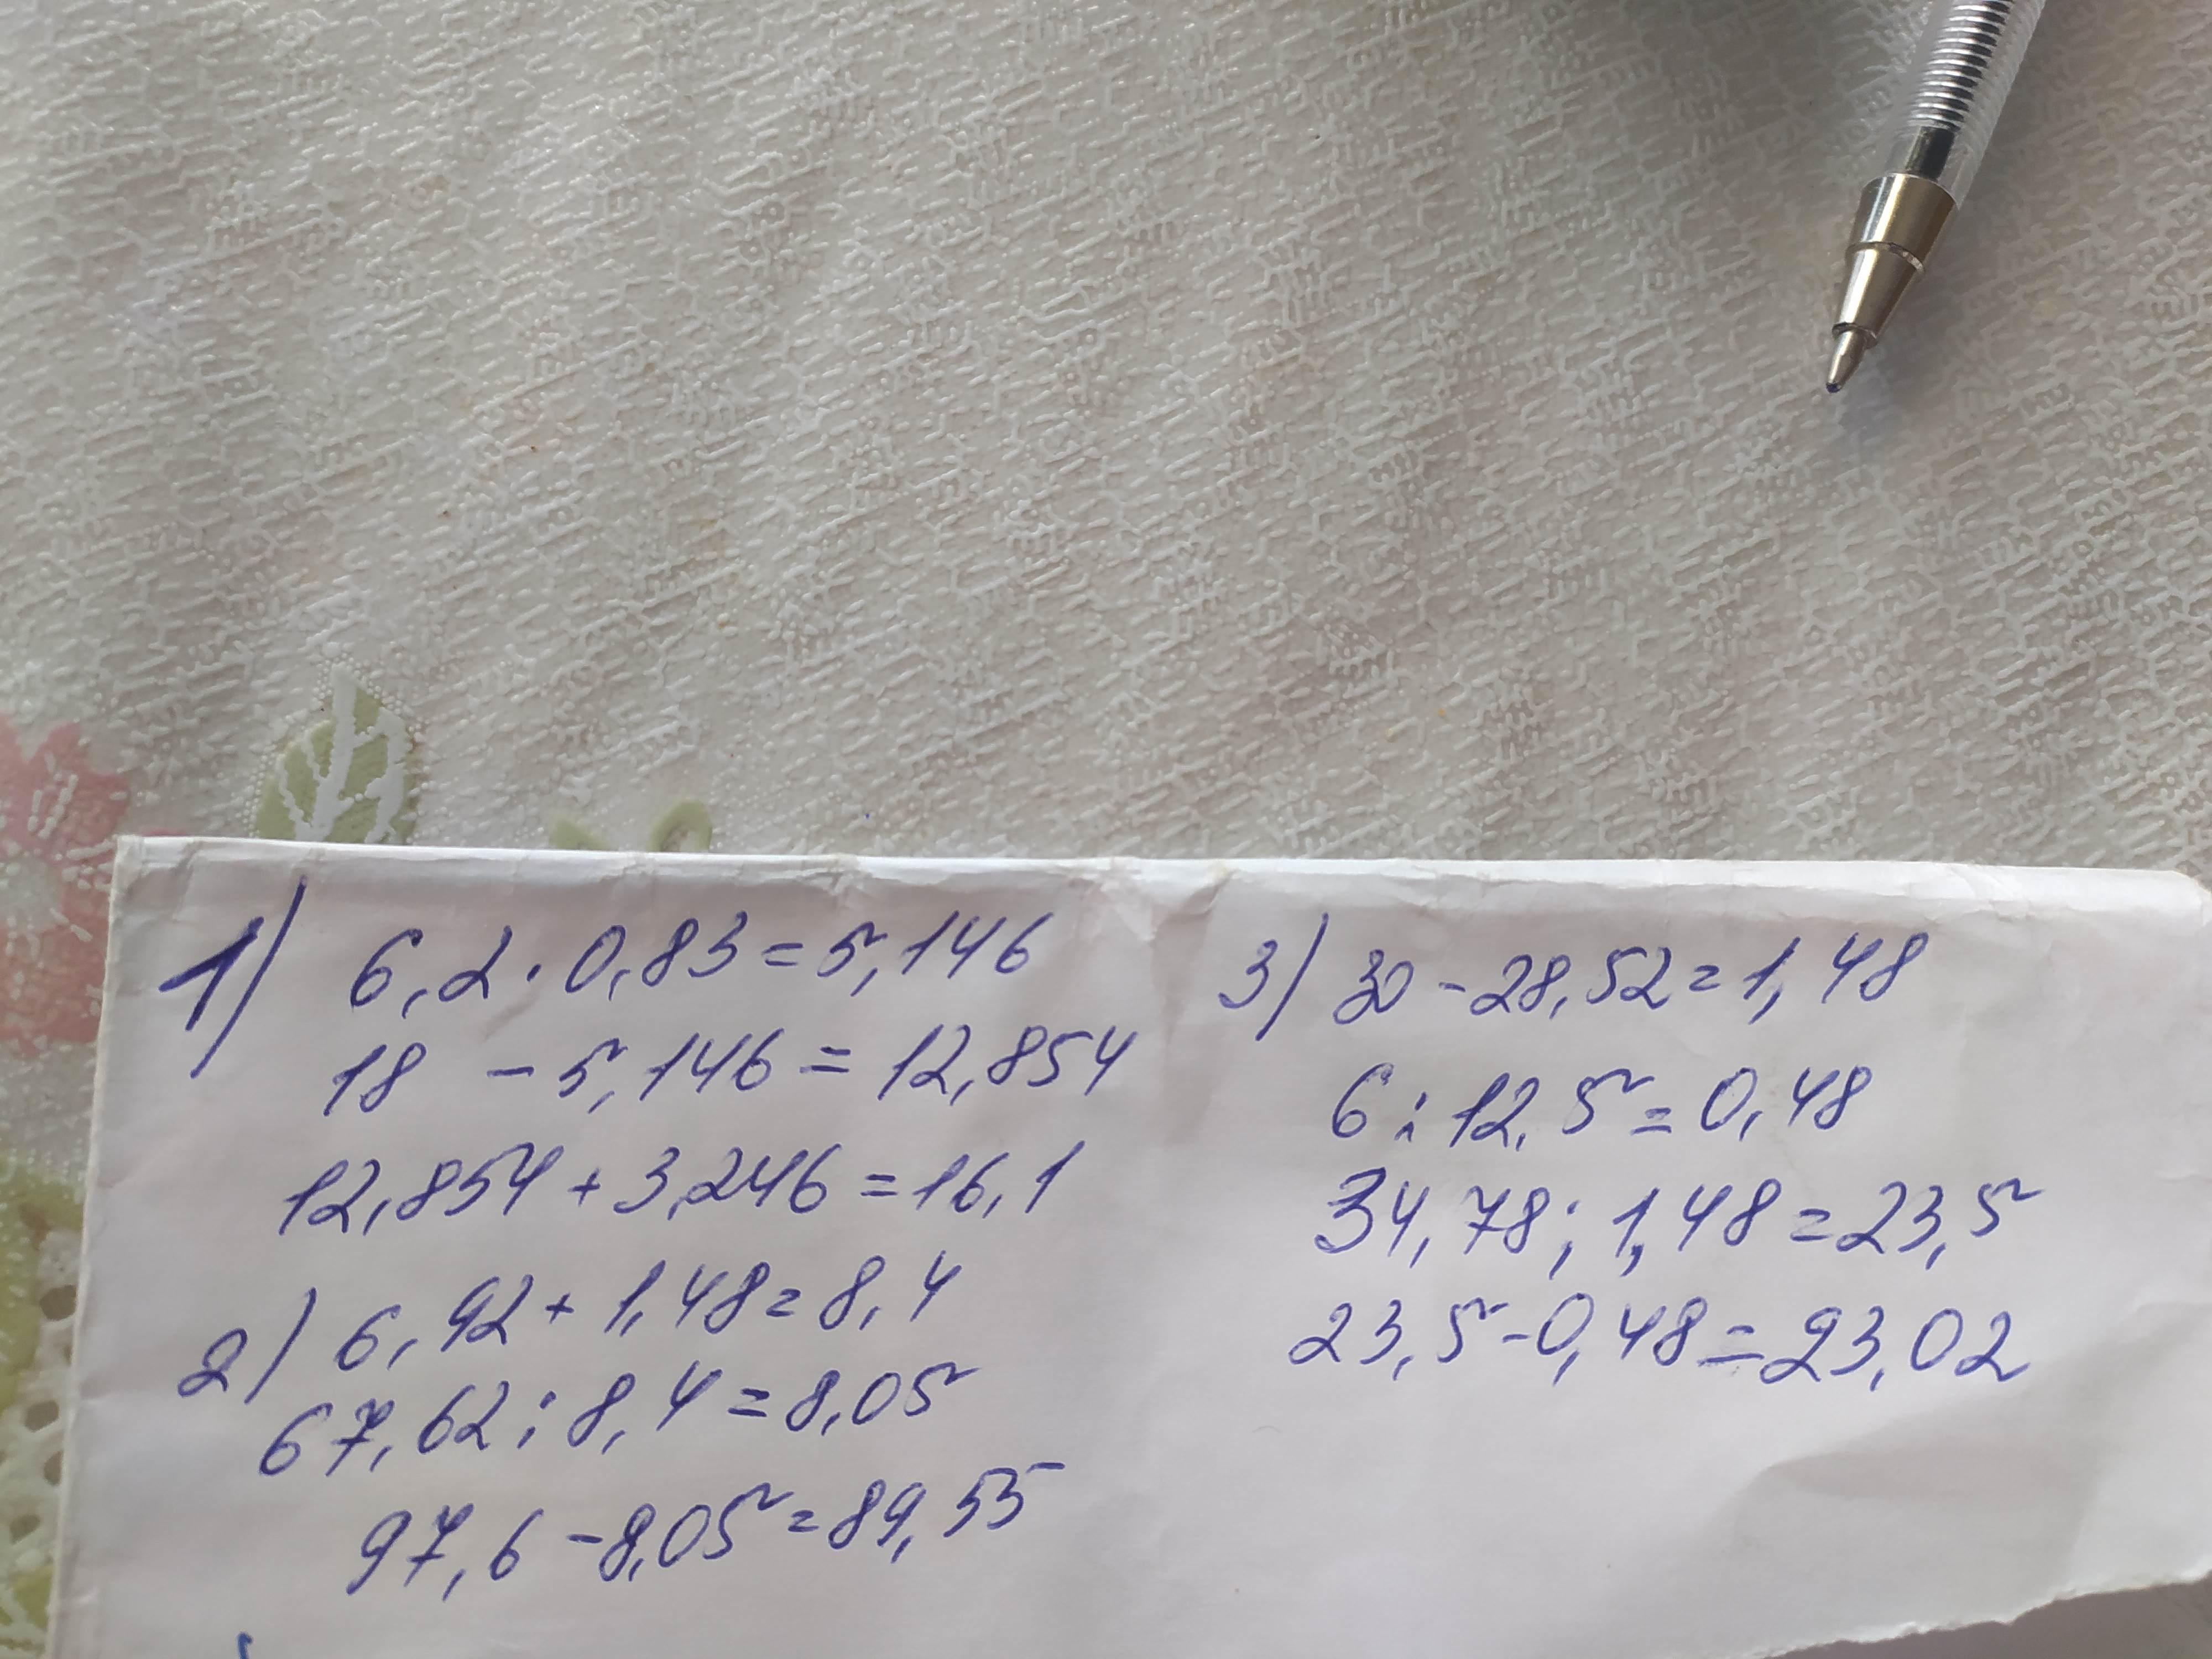 1) 6,2 · 0,83 = 5,146
18 - 5,146 = 12,854
12,854 + 3,246 = 16,1
2) 6,92 + 1,48 = 8,4
67,62 : 8,4 = 8,05
97,6 - 8,05 = 89,55
3) 30 - 28,52 = 1,48
6 : 12,5 = 0,48
34,78 : 1,48 = 23,5
23,5 - 0,48 = 23,02